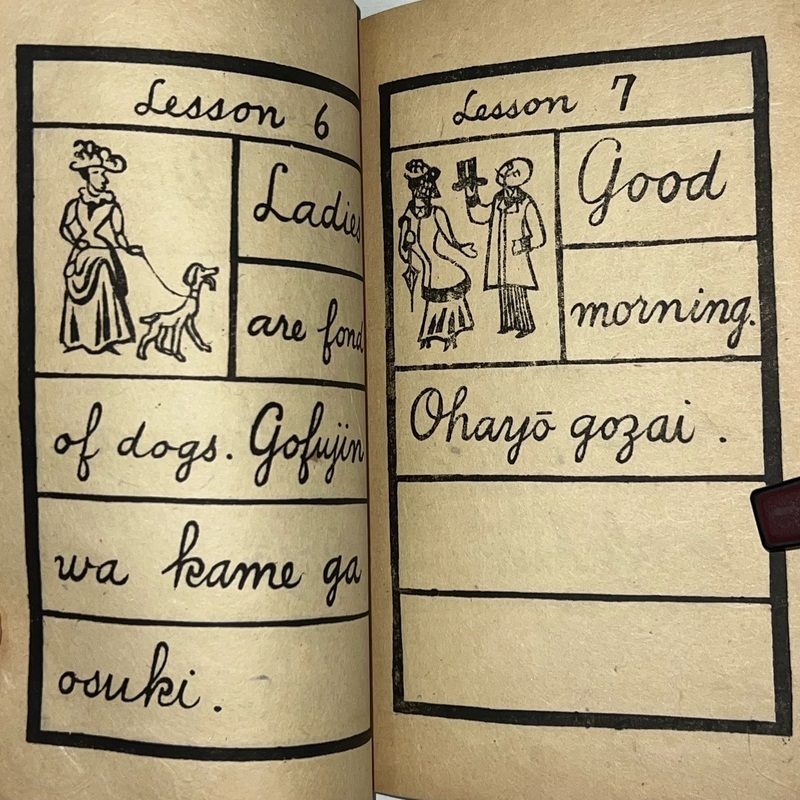 Lesson 6
Ladies
are fond
of dogs. Gofujin
wa kame ga
osuki.
Lesson 7
Good
morning.
Ohayō gozai.